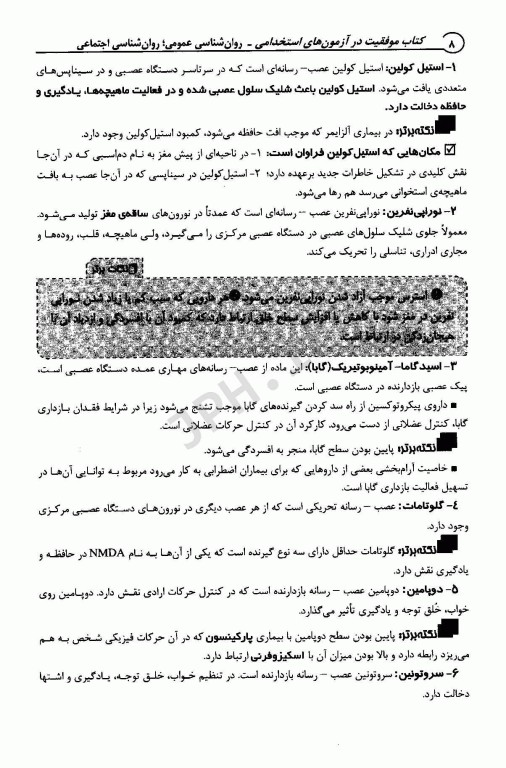 ۸ کتاب موفقیت در آزمون‌های استخدامی - روان‌شناسی عمومی؛ روان‌شناسی اجتماعی
۱- استیل کولین: استیل کولین عصب– رسانه‌ای است کـه در سرتاسر دسـتگاه عصبـی و در سیناپس‌هـای
متعددی یافت می‌شود. استیل کولین باعث شلیک سلول عصبی شده و در فعالیت ماهیچه‌هـا، یـادگیری و
حافظه دخالت دارد.
نکته برتر: در بیماری آلزایمر که موجب افت حافظه می‌شود، کمبود استیل‌کولین وجود دارد.
☑ مکان‌هایی که استیل‌کولین فراوان است: ۱- در ناحیه‌ای از پیش مغز به نام دم‌اسبی کـه در آن‌جـا
نقش کلیدی در تشکیل خاطرات جدید برعهده دارد؛ ۲- استیل‌کولین در سیناپسی که در آن‌جا عصب بـه بافـت
ماهیچه‌ی استخوانی می‌رسد هم رها می‌شود.
۲- نوراپی‌نفرین: نوراپی‌نفرین عصب – رسانه‌ای است که عمدتاً در نورون‌های ساقه‌ی مغز تولید مـی‌شـود.
معمولاً جلوی شلیک سلول‌های عصبی در دستگاه عصبی مرکـزی را مـی‌گیـرد، ولـی ماهیچـه، قلـب، روده‌هـا و
مجاری ادراری، تناسلی را تحریک می‌کند.
نکات برتر
● استرس موجب آزاد شدن نوراپی‌نفرین می‌شود. ● هر دارویی که سبب کم یا زیاد شدن نوراپی
نفرین در مغز شود با کاهش یا افزایش سطح خلق ارتباط دارد، که کمبود آن با افسردگی و ازدیاد آن با
هیجان‌زدگی در ارتباط است.
۳- اسیدگاما- آمینوبوتیریک(گابا): این ماده از عصب– رسانه‌های مهـاری عمـده دسـتگاه عصبـی اسـت،
پیک عصبی بازدارنده در دستگاه عصبی است.
■ داروی پیکروتوکسین از راه سد کردن گیرنده‌های گابا موجب تشنج می‌شود زیرا در شرایط فقدان بـازداری
گابا، کنترل عضلانی از دست می‌رود. کارکرد آن در کنترل حرکات عضلانی است.
نکته برتر: پایین بودن سطح گابا، منجر به افسردگی می‌شود.
■ خاصیت آرام‌بخشی بعضی از داروهایی که برای بیماران اضطرابی به کار می‌رود مربوط بـه توانـایی آن‌هـا در
تسهیل فعالیت بازداری گابا است.
۴- گلوتامات: عصب – رسانه تحریکی است که از هر عصب دیگری در نورون‌هـای دستگاه عصـبی مرکـزی
وجود دارد.
نکته برتر: گلوتامات حداقل دارای سه نوع گیرنده است که یکی از آن‌هـا بـه نـام NMDA در حافظـه و
یادگیری نقش دارد.
۵- دوپامین: دوپامین عصب – رسانه بازدارنده است که در کنترل حرکات ارادی نقـش دارد. دوپـامین روی
خواب، خُلق توجه و یادگیری تأثیر می‌گذارد.
نکته برتر: پایین بودن سطح دوپامین با بیماری پارکینسون که در آن حرکات فیزیکی شـخص بـه هـم
می‌ریزد رابطه دارد و بالا بودن میزان آن با اسکیزوفرنی ارتباط دارد.
۶- سروتونین: سروتونین عصب – رسانه بازدارنده است. در تنظیم خـواب، خلـق توجـه، یـادگیری و اشـتها
دخالت دارد.